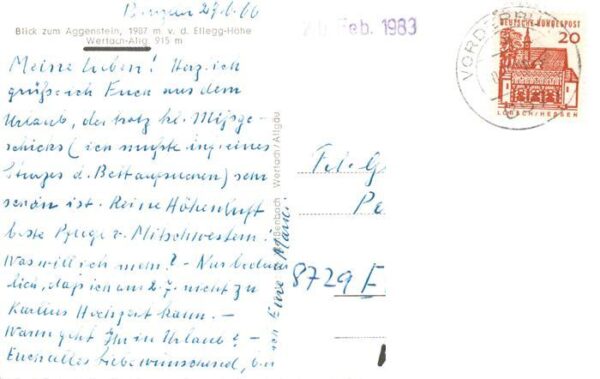 Bingen 27.6.66
Blick zum Aggenstein, 1987 m v. d. Ellegg-Höhe
Wertach-Allg. 915 m
Meine Lieben! Herzlich
grüße ich Euch aus dem
Urlaub, der trotz kl. Mißge-
schicks (ich mußte infl. eines
Sturzes d. Bett aufsuchen) sehr
schön ist. Reine Höhenluft
beste Pflege v. Mitschwestern.
Was will ich mehr? - Nur bedauer
lich, daß ich am 2.7. nicht zu
Karlius Hochzeit kann. -
Wann geht Ihr in Urlaub? -
Euch alles Liebe wünschend, bin
ich Eure
Wertach/Allgäu
Feb. 1983
VORD
DEUTSCHE BUNDESPOST
20
LORSCH/HESSEN
8729 E